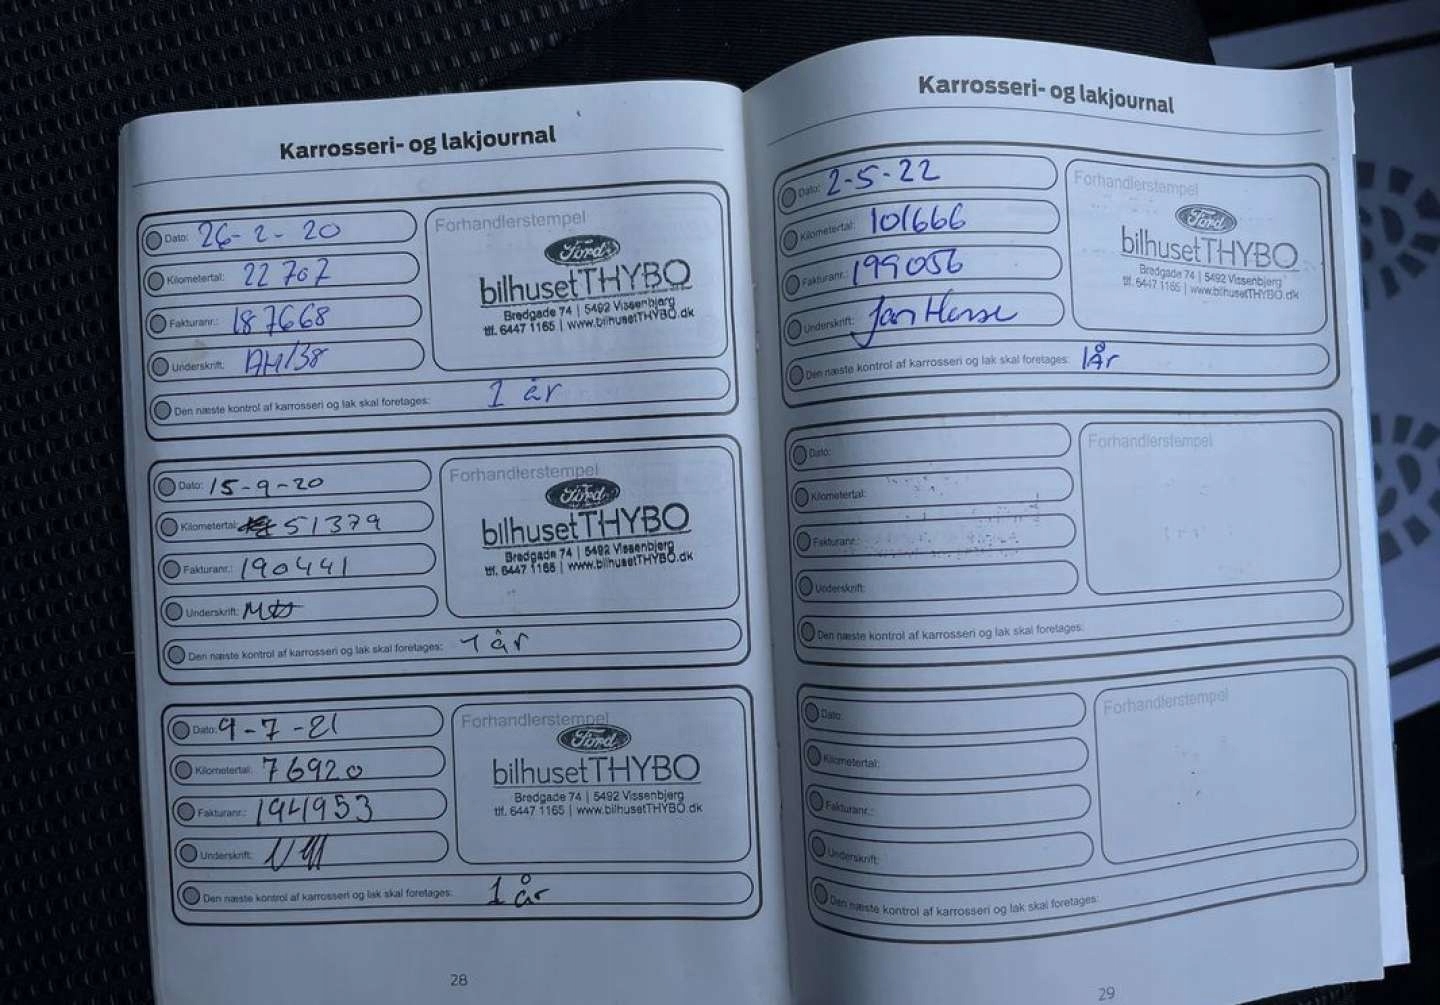 Karrosseri- og lakjournal
Dato: 26-2-20
Kilometertal: 22707
Fakturanr.: 187668
Underskrift: AH/38
Forhandlerstempel
Ford
bilhusetTHYBO
Bredgade 74 | 5492 Vissenbjerg
tlf. 6447 1165 | www.bilhusetTHYBO.dk
Den næste kontrol af karrosseri og lak skal foretages: 1 år
Dato: 15-9-20
Kilometertal: 51379
Fakturanr.: 190441
Underskrift:
Forhandlerstempel
Ford
bilhusetTHYBO
Bredgade 74 | 5492 Vissenbjerg
tlf. 6447 1165 | www.bilhusetTHYBO.dk
Den næste kontrol af karrosseri og lak skal foretages: 1 år
Dato: 9-7-21
Kilometertal: 76920
Fakturanr.: 194953
Underskrift:
Forhandlerstempel
Ford
bilhusetTHYBO
Bredgade 74 | 5492 Vissenbjerg
tlf. 6447 1165 | www.bilhusetTHYBO.dk
Den næste kontrol af karrosseri og lak skal foretages: 1 år
28
Karrosseri- og lakjournal
Dato: 2-5-22
Kilometertal: 101666
Fakturanr.: 199056
Underskrift: Jan
Forhandlerstempel
Ford
bilhusetTHYBO
Bredgade 74 | 5492 Vissenbjerg
tlf. 6447 1165 | www.bilhusetTHYBO.dk
Den næste kontrol af karrosseri og lak skal foretages: 1År
Dato:
Kilometertal:
Fakturanr.:
Underskrift:
Forhandlerstempel
Den næste kontrol af karrosseri og lak skal foretages:
Dato:
Kilometertal:
Fakturanr.:
Underskrift:
Forhandlerstempel
Den næste kontrol af karrosseri og lak skal foretages:
29